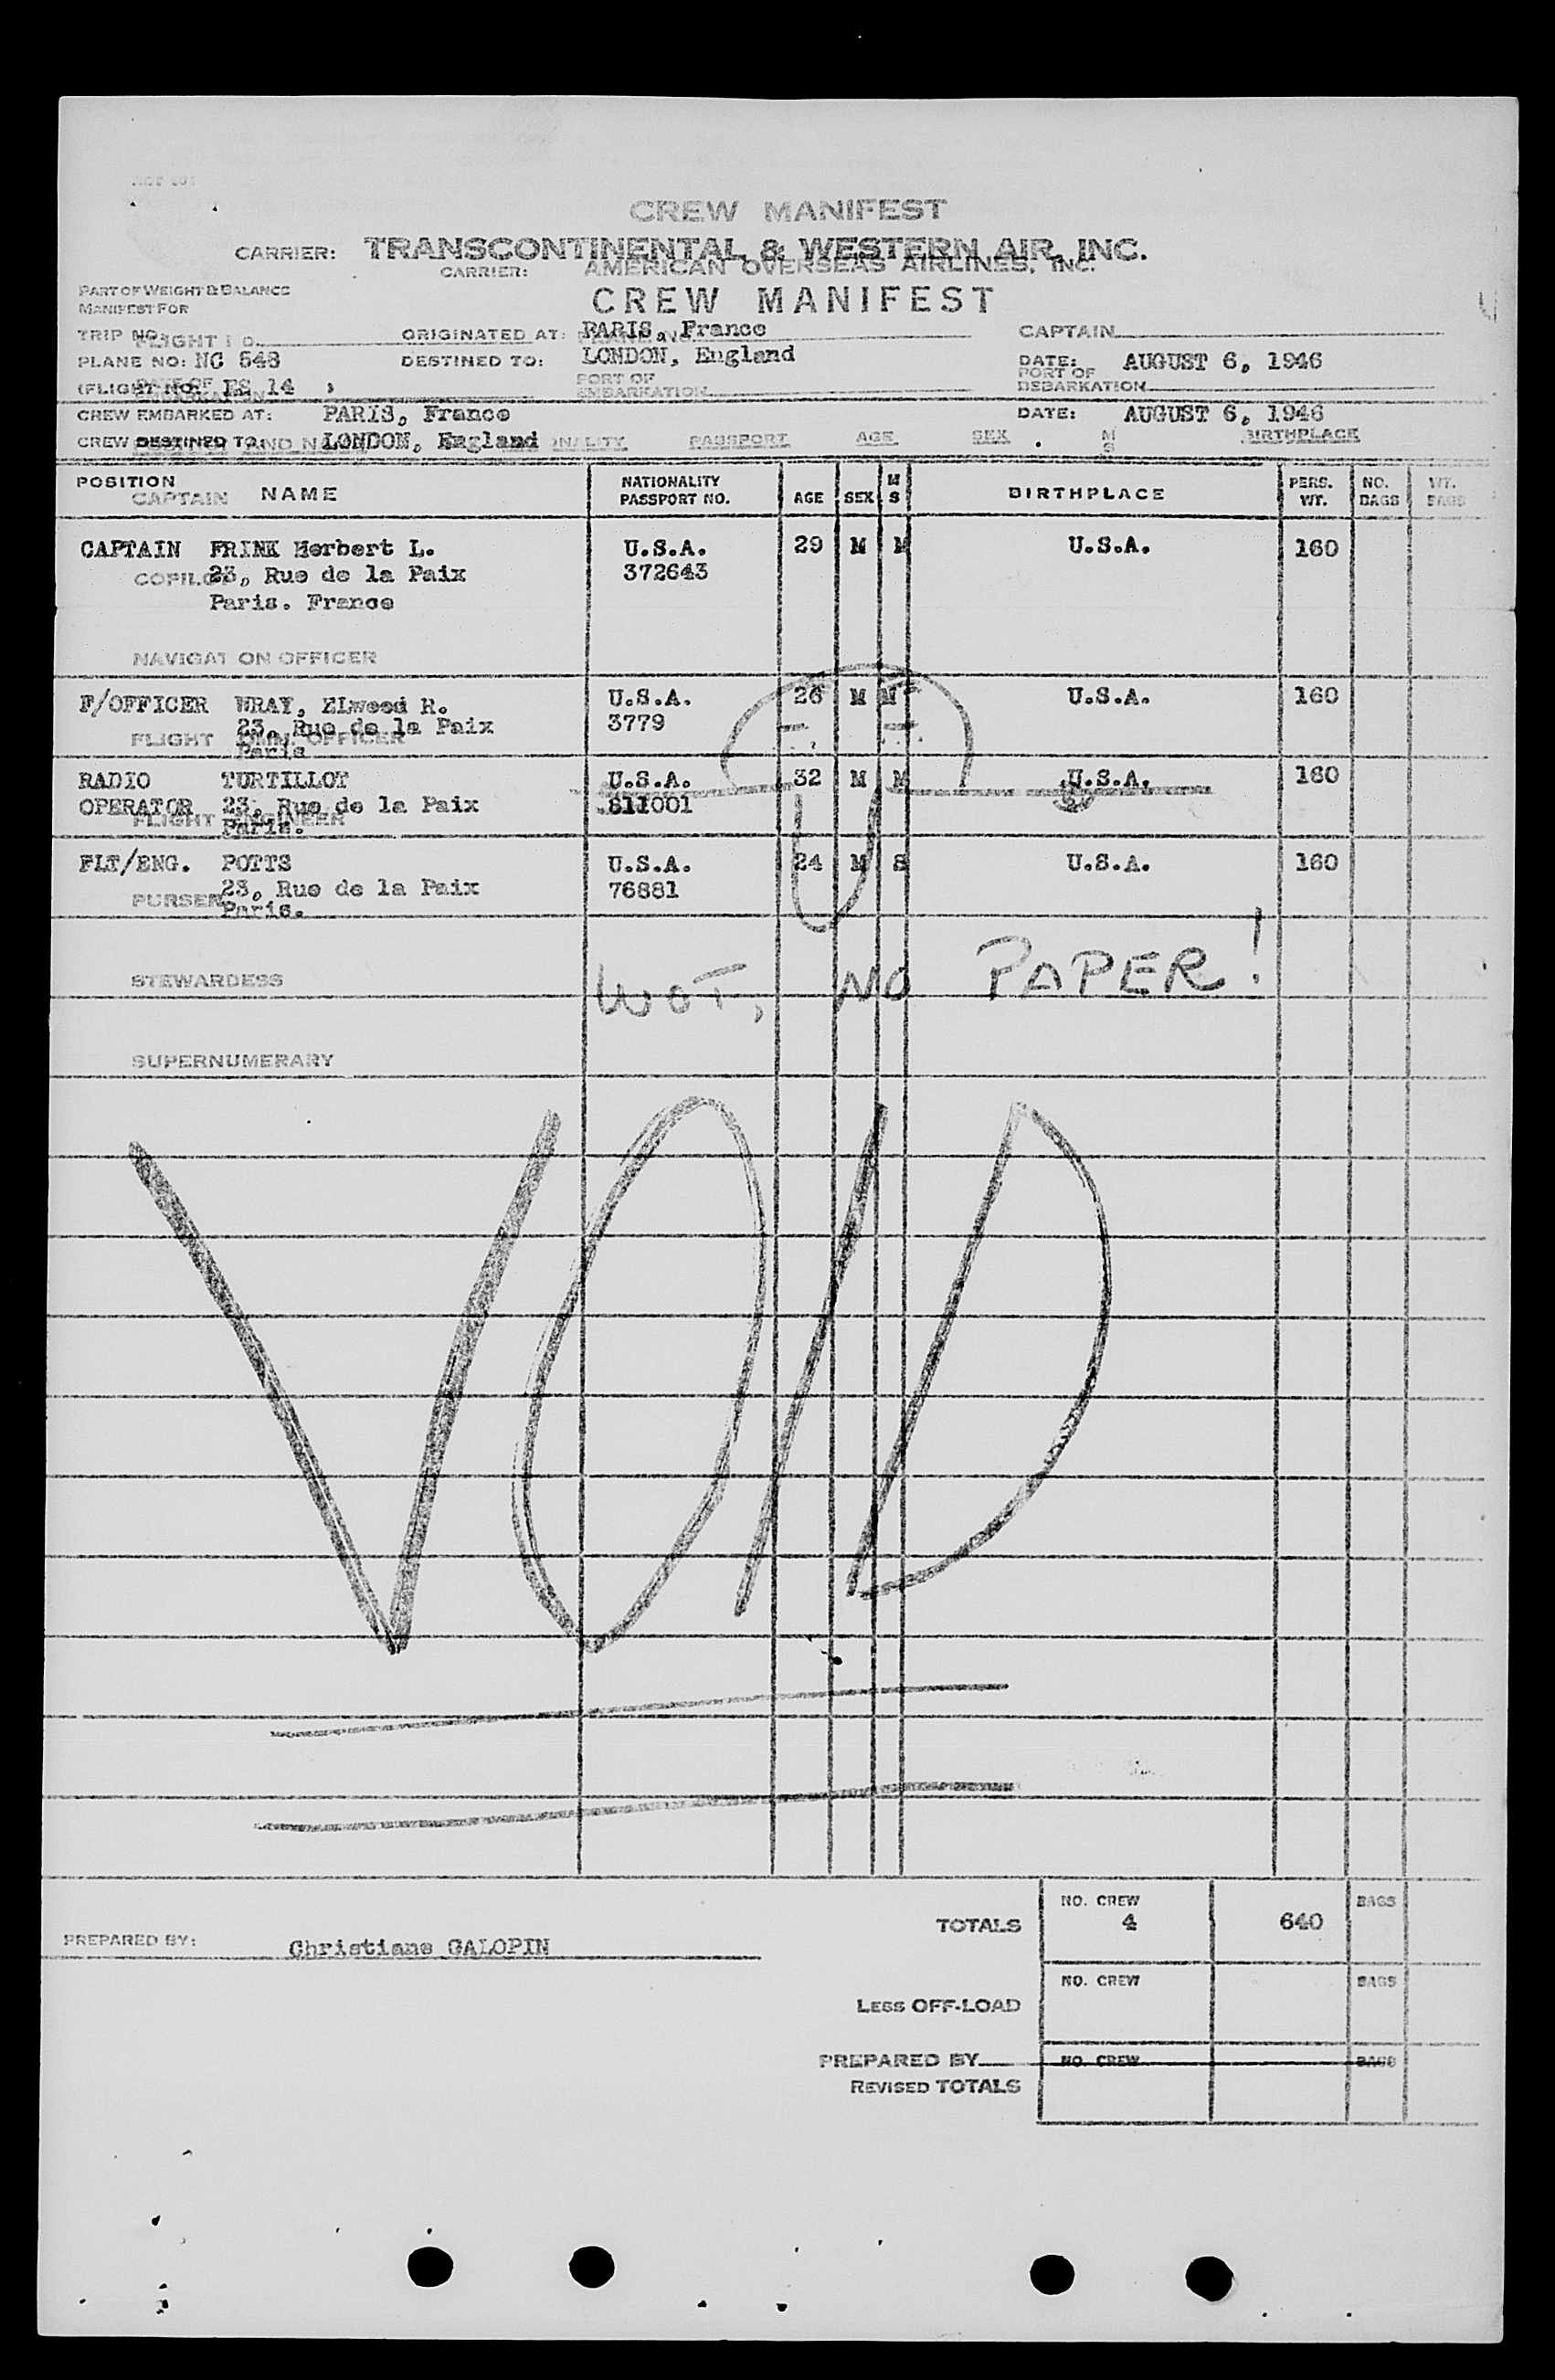 CREW MANIFEST
CARRIER: TRANSCONTINENTAL & WESTERN AIR, INC.
CARRIER: AMERICAN OVERSEAS AIRLINES, INC.
PART OF WEIGHT & BALANCE
MANIFEST FOR
CREW MANIFEST
TRIP NO. ORIGINATED AT: PARIS, France CAPTAIN
PLANE NO: NC 548 DESTINED TO: LONDON, England DATE: AUGUST 6, 1946
(FLIGHT NO. ES 14 ) PORT OF EMBARKATION PORT OF DEBARKATION
CREW EMBARKED AT: PARIS, France DATE: AUGUST 6, 1946
CREW DESTINED TO LONDON, England PASSPORT AGE SEX M S BIRTHPLACE
POSITION NAME NATIONALITY PASSPORT NO. AGE SEX M S BIRTHPLACE PERS. WT. NO. BAGS WT. BAGS
CAPTAIN
CAPTAIN FRINK Herbert L. U.S.A. 29 M M U.S.A. 160
COPILOT 23, Rue de la Paix 372643
Paris. France
NAVIGAT ON OFFICER
F/OFFICER WRAY, ELwood R. U.S.A. 26 M M U.S.A. 160
23, Rue de la Paix 3779
FLIGHT OFFICER
Paris
RADIO TURTILLOT U.S.A. 32 M M U.S.A. 160
OPERATOR 23, Rue de la Paix 811001
FLIGHT ENGINEER
Paris.
FLT/ENG. POTTS U.S.A. 24 M S U.S.A. 160
23, Rue de la Paix 76881
PURSER
Paris.
STEWARDESS
WOT, NO PAPER!
SUPERNUMERARY
VOID
TOTALS NO. CREW 4 640 BAGS
PREPARED BY: Christiane GALOPIN
LESS OFF-LOAD NO. CREW BAGS
PREPARED BY NO. CREW BAGS
REVISED TOTALS